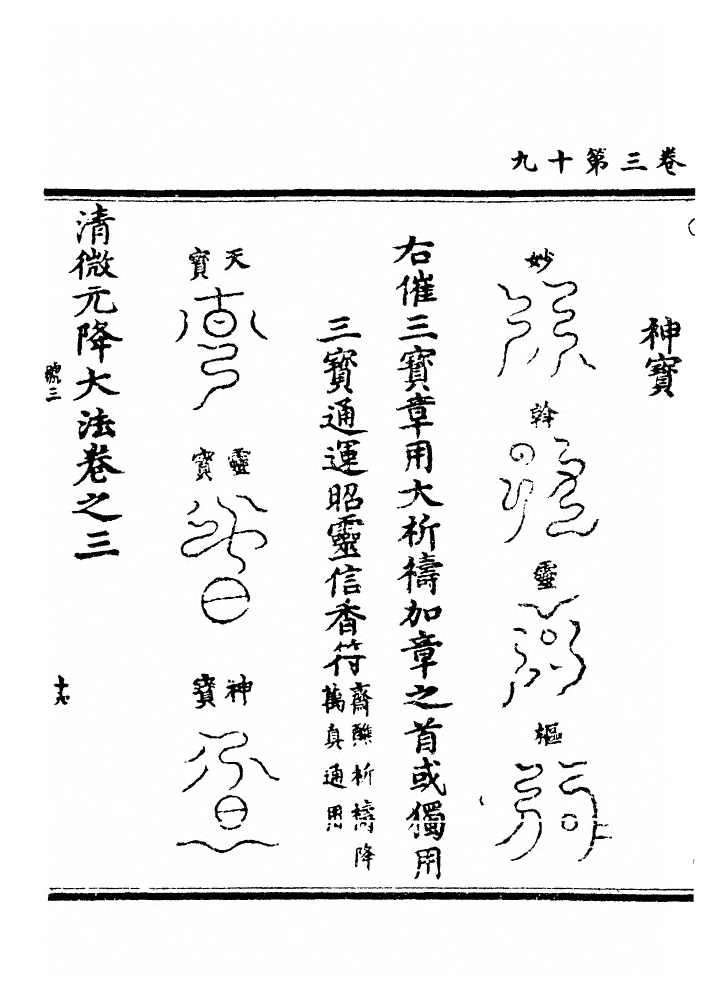 卷三第十九
神寶
妙
斡
靈
樞
右催三寶章用大祈禱加章之首或獨用
三寶通運昭靈信香符
齋醮祈禱降
萬真通用
天寶
靈寶
神寶
清微元降大法卷之三
號三